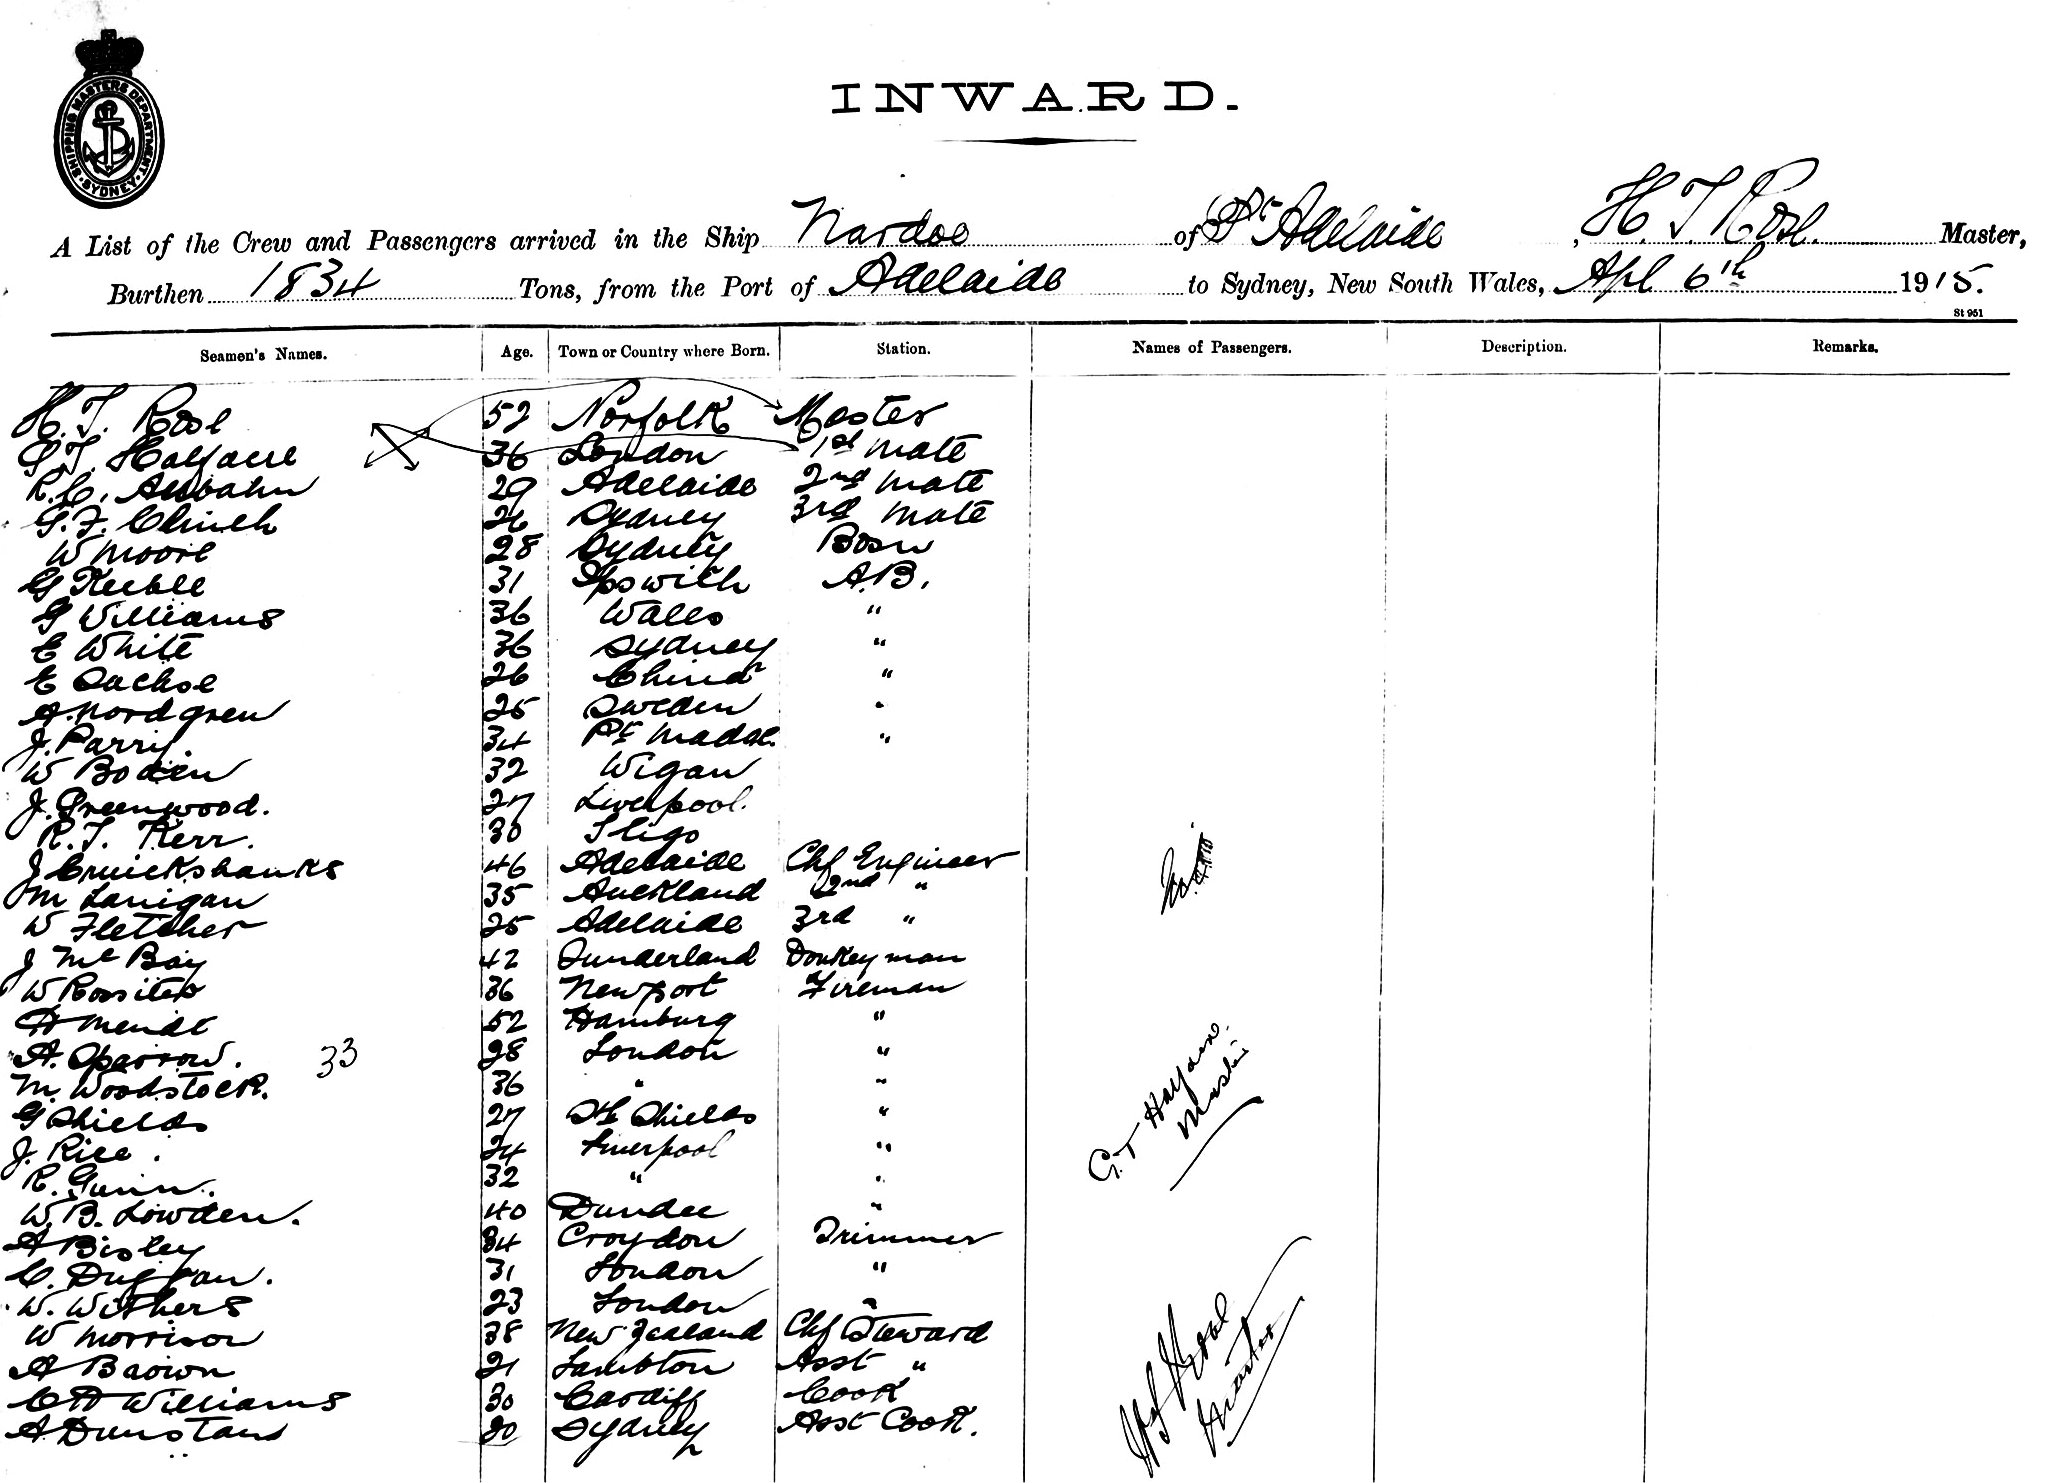 SHIPPING MASTERS DEPARTMENT. SYDNEY.
INWARD.
A List of the Crew and Passengers arrived in the Ship Nardoo of Pt Adelaide, H. T. Rose. Master,
Burthen 1834 Tons, from the Port of Adelaide to Sydney, New South Wales, Apl 6th 1915.
St 951
Seamen's Names. Age. Town or Country where Born. Station. Names of Passengers. Description. Remarks.
H. T. Rose 52 Norfolk Master
S. T. Halfacre 36 London 1st Mate
R. C. 29 Adelaide 2nd Mate
G. F. Clinch 26 Sydney 3rd Mate
W Moore 28 Sydney Bosn
G Keeble 31 Ipswich A.B.
G Williams 36 Wales "
E White 36 Sydney "
E Sachse 26 China "
A. Nordgren 25 Sweden "
J. Parry. 34 Pt Madoc. "
W Boden 32 Wigan
J. Greenwood. 27 Liverpool.
R. T. Kerr. 30 Sligo
J Cruickshanks 46 Adelaide Chf Engineer
M Lanigan 35 Auckland 2nd "
W Fletcher 25 Adelaide 3rd "
J McBay 42 Sunderland Donkeyman
W Rossiter 36 Newport Fireman
H Mendt 52 Hamburg "
A. Sparrow. 33 28 London "
M. Woodstock. 36 " "
G Shields 27 Sth Shields "
J. Rice. 24 Liverpool "
R. Gunn. 32 " "
W. B. Lowden. 40 Dundee "
A Bisley 34 Croydon Trimmer
C. Duggan. 31 London "
W. Withers 23 London "
W Morrison 38 New Zealand Chf Steward
A Brown 21 Lambton Asst "
C H Williams 30 Cardiff Cook
A. Dunstan 20 Sydney Asst Cook.
H T Rose
Master